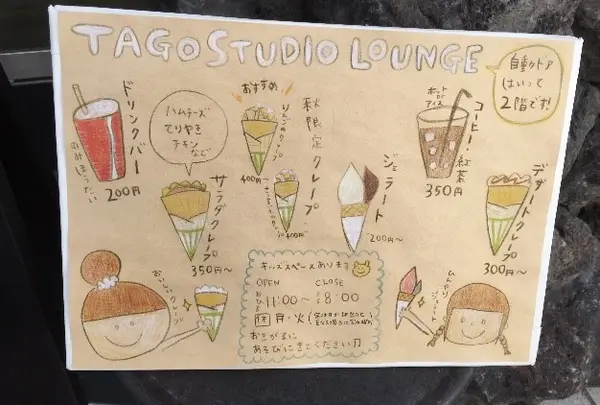 TAGO STUDIO LOUNGE
自動ドア
はいって
2階です!
ドリンクバー
のみほうだい
200円
ハムチーズ
てりやき
チキン
など
サラダクレープ
350円〜
おすすめ
秋限定クレープ
りんごのクレープ
400円〜
400円〜
ジェラート
200円〜
ホットor
アイス
コーヒー・紅茶
350円
デザートクレープ
300円〜
おいしいクレープ
キッズスペースあります
OPEN CLOSE
11:00〜 8:00
休 月・火
おきがるに
あそびにきてください♫
ひんやり
ジェラート